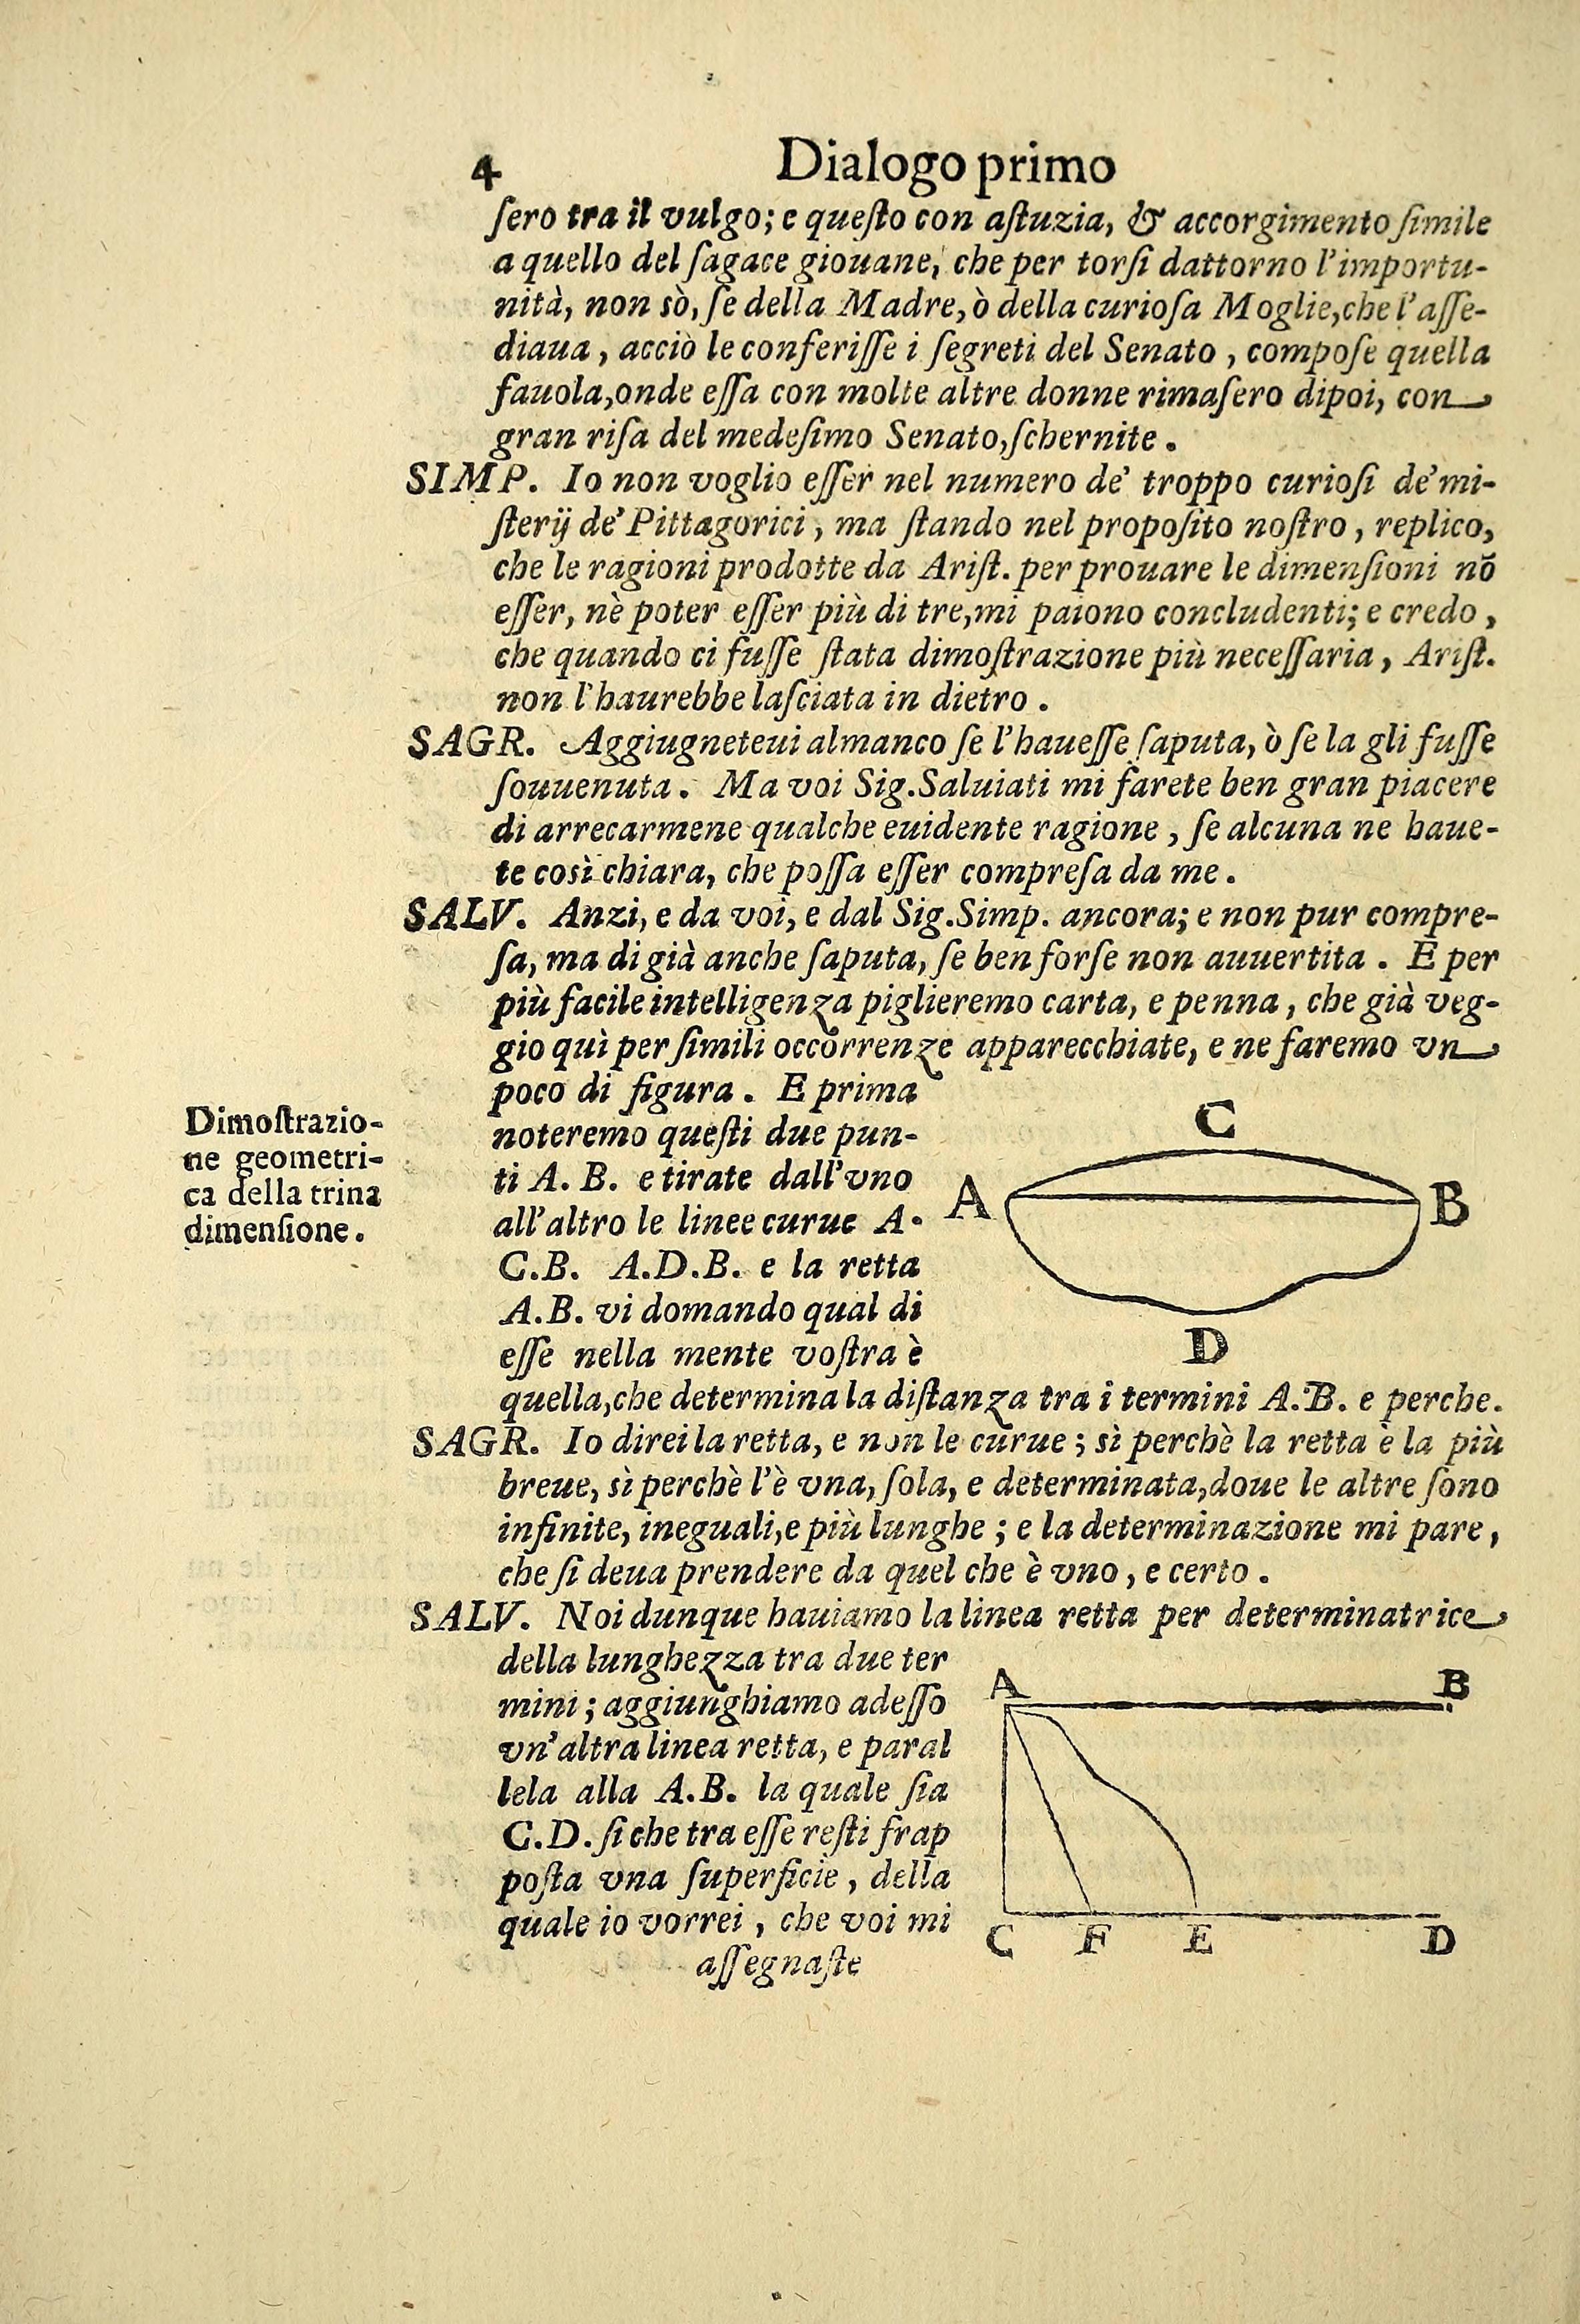 4 Dialogo primo
ſero tra il vulgo; e queſto con aſtuzia, & accorgimento ſimile
a quello del ſagace giouane, che per torſi dattorno l'importu-
nità, non sò, ſe della Madre, ò della curioſa Moglie, che l'aſſe-
diaua, acciò le conferiſſe i ſegreti del Senato, compoſe quella
fauola, onde eſſa con molte altre donne rimaſero dipoi, con
gran riſa del medeſimo Senato, ſchernite.
SIMP. Io non voglio eſſer nel numero de' troppo curioſi de' mi-
ſterij de' Pittagorici, ma ſtando nel propoſito noſtro, replico,
che le ragioni prodotte da Ariſt. per prouare le dimenſioni nō
eſſer, nè poter eſſer più di tre, mi paiono concludenti; e credo,
che quando ci fuſſe ſtata dimoſtrazione più neceſſaria, Ariſt.
non l'haurebbe laſciata in dietro.
SAGR. Aggiugneteui almanco ſe l'haueſſe ſaputa, ò ſe la gli fuſſe
ſouuenuta. Ma voi Sig. Saluiati mi farete ben gran piacere
di arrecarmene qualche euidente ragione, ſe alcuna ne haue-
te così chiara, che poſſa eſſer compreſa da me.
SALV. Anzi, e da voi, e dal Sig. Simp. ancora; e non pur compre-
ſa, ma di già anche ſaputa, ſe ben forſe non auuertita. E per
più facile intelligenza piglieremo carta, e penna, che già veg-
gio quì per ſimili occorrenze apparecchiate, e ne faremo vn
poco di figura. E prima
noteremo queſti due pun-
ti A. B. e tirate dall'vno
all'altro le linee curue A.
C.B. A.D.B. e la retta
A.B. vi domando qual di
eſſe nella mente voſtra è
quella, che determina la diſtanza tra i termini A.B. e perche.
Dimoſtrazio-
ne geometri-
ca della trina
dimenſione.
C
A B
D
SAGR. Io direi la retta, e non le curue; sì perchè la retta è la più
breue, sì perchè l'è vna, ſola, e determinata, doue le altre ſono
infinite, ineguali, e più lunghe; e la determinazione mi pare,
che ſi deua prendere da quel che è vno, e certo.
SALV. Noi dunque hauiamo la linea retta per determinatrice
della lunghezza tra due ter
mini; aggiunghiamo adeſſo
vn'altra linea retta, e paral
lela alla A.B. la quale ſia
C.D. ſi che tra eſſe reſti frap
poſta vna ſuperficie, della
quale io vorrei, che voi mi
aſſegnaſte
A B
C F E D